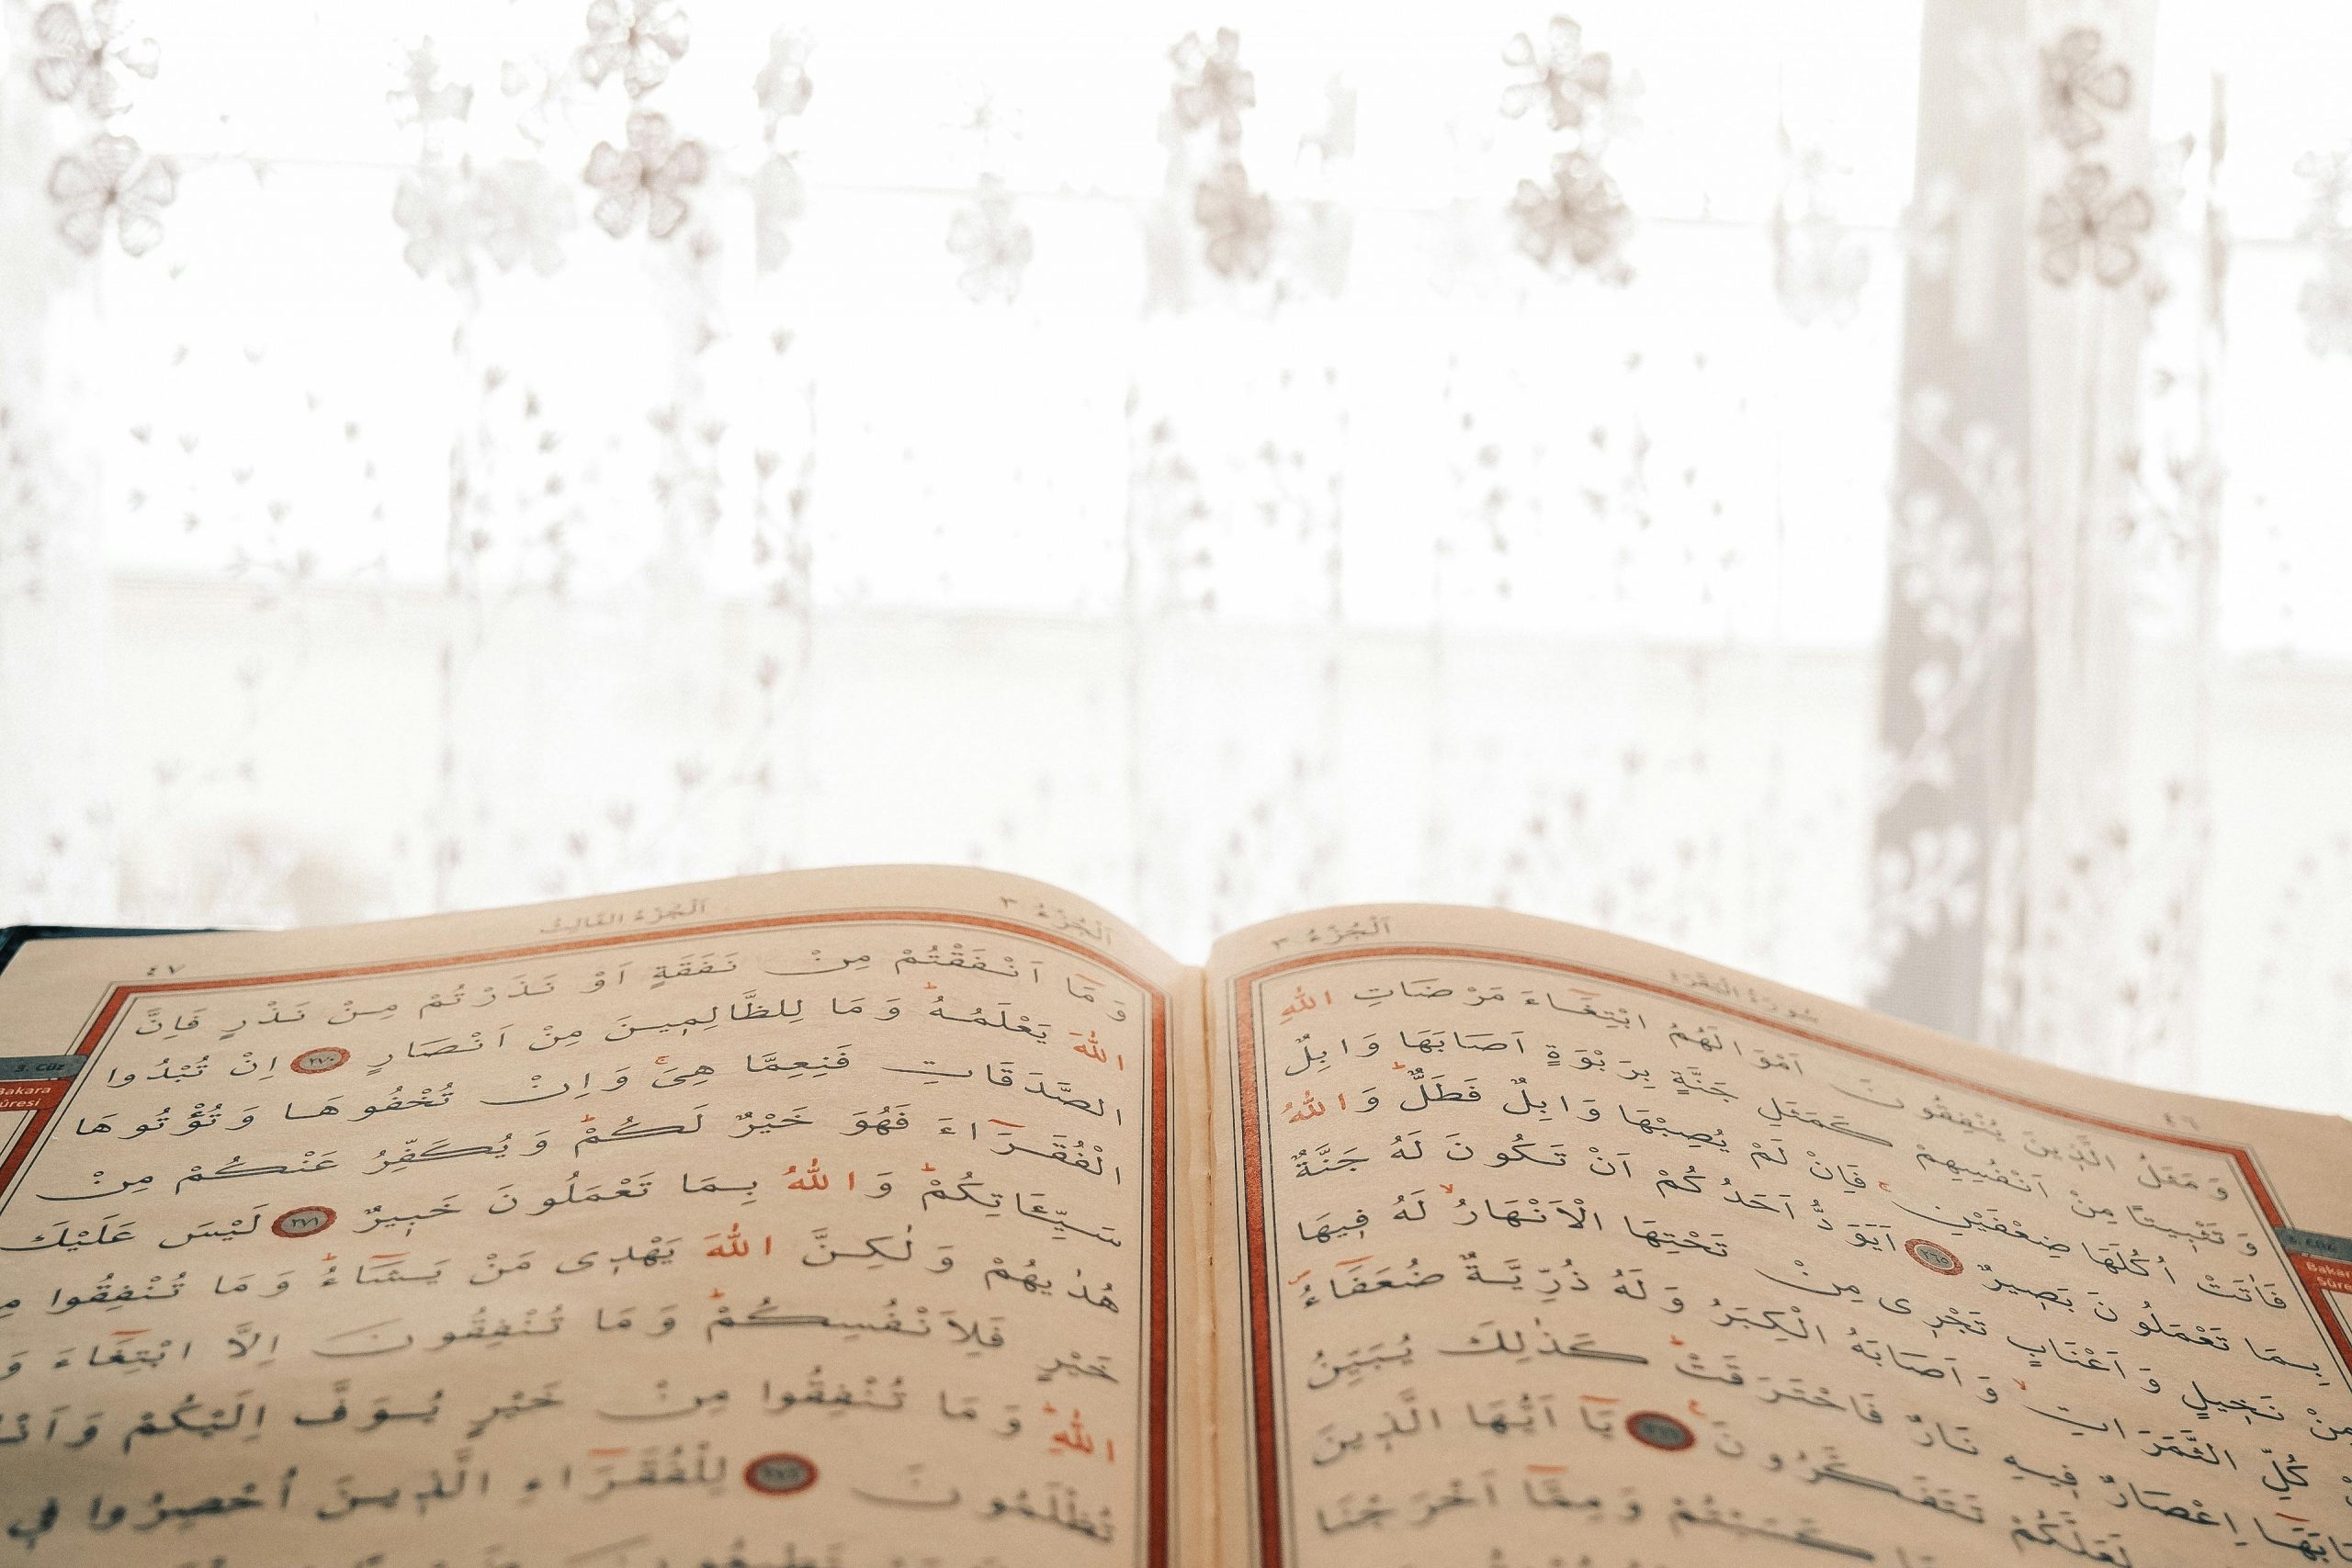 اَلْجُزْءُ ٣
سُورَةُ الْبَقَرَةِ
٤٦
وَمَثَلُ الَّذِينَ يُنْفِقُونَ اَمْوَالَهُمُ ابْتِغَاءَ مَرْضَاتِ اللّٰهِ
وَتَثْبِيتًا مِنْ اَنْفُسِهِمْ كَمَثَلِ جَنَّةٍ بِرَبْوَةٍ اَصَابَهَا وَابِلٌ
فَاٰتَتْ اُكُلَهَا ضِعْفَيْنِ فَاِنْ لَمْ يُصِبْهَا وَابِلٌ فَطَلٌّ وَاللّٰهُ
بِمَا تَعْمَلُونَ بَصِيرٌ ٢٦٥ اَيَوَدُّ اَحَدُكُمْ اَنْ تَكُونَ لَهُ جَنَّةٌ
مِنْ نَخِيلٍ وَاَعْنَابٍ تَجْرِى مِنْ تَحْتِهَا الْاَنْهَارُ لَهُ فِيهَا
كُلِّ الثَّمَرَاتِ وَاَصَابَهُ الْكِبَرُ وَلَهُ ذُرِّيَّةٌ ضُعَفَاءُ
اِعْصَارٌ فِيهِ نَارٌ فَاحْتَرَقَتْ كَذٰلِكَ يُبَيِّنُ
لَعَلَّكُمْ تَتَفَكَّرُونَ ٢٦٦ يَا اَيُّهَا الَّذِينَ
كَسَبْتُمْ وَمِمَّا اَخْرَجْنَا
3. Cüz
Bakara
اَلْجُزْءُ ٣
اَلْجُزْءُ الثَّالِثُ
٤٧
وَمَا اَنْفَقْتُمْ مِنْ نَفَقَةٍ اَوْ نَذَرْتُمْ مِنْ نَذْرٍ فَاِنَّ
اللّٰهَ يَعْلَمُهُ وَمَا لِلظَّالِمِينَ مِنْ اَنْصَارٍ ٢٧٠ اِنْ تُبْدُوا
الصَّدَقَاتِ فَنِعِمَّا هِىَ وَاِنْ تُخْفُوهَا وَتُؤْتُوهَا
الْفُقَرَاءَ فَهُوَ خَيْرٌ لَكُمْ وَيُكَفِّرُ عَنْكُمْ مِنْ
سَيِّئَاتِكُمْ وَاللّٰهُ بِمَا تَعْمَلُونَ خَبِيرٌ ٢٧١ لَيْسَ عَلَيْكَ
هُدٰيهُمْ وَلٰكِنَّ اللّٰهَ يَهْدِى مَنْ يَشَاءُ وَمَا تُنْفِقُوا
خَيْرٍ فَلِاَنْفُسِكُمْ وَمَا تُنْفِقُونَ اِلَّا ابْتِغَاءَ
اللّٰهِ وَمَا تُنْفِقُوا مِنْ خَيْرٍ يُوَفَّ اِلَيْكُمْ
تُظْلَمُونَ ٢٧٢ لِلْفُقَرَاءِ الَّذِينَ اُحْصِرُوا فِى
3. Cüz
Bakara
Sûresi